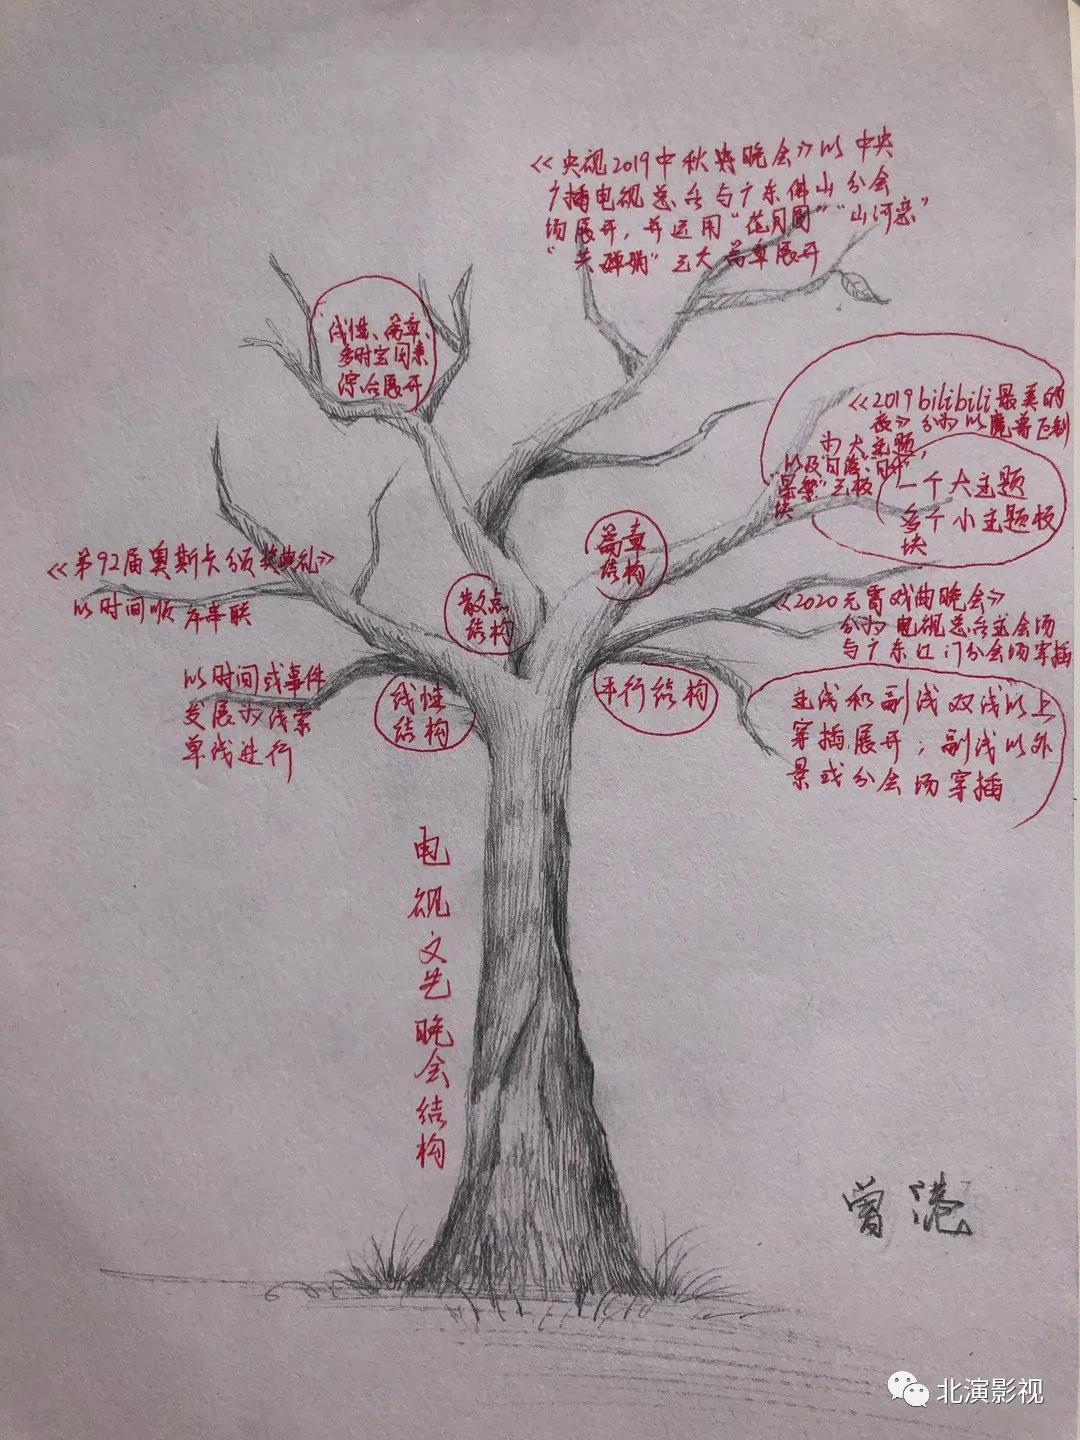 《央视2019中秋特晚会》以中央
广播电视总台与广东佛山分会
场展开，并运用“花月圆”“山河恋”
“共婵娟”三大篇章展开
线性、篇章、
多时空因素
综合展开
《2019bilibili最美的
夜》分为以魔兽
为大主题，
以及“日落”
三板
块
一个大主题
多个小主题板
块
篇章
结构
《第92届奥斯卡颁奖典礼》
以时间顺序串联
散点
结构
《2020元宵戏曲晚会》
分为电视总台主会场
与广东江门分会场穿插
以时间或事件
发展为线索
单线进行
线性
结构
平行结构
主线和副线双线以上
穿插展开；副线以外
景或分会场穿插
电视文艺晚会结构
曾港
北演影视